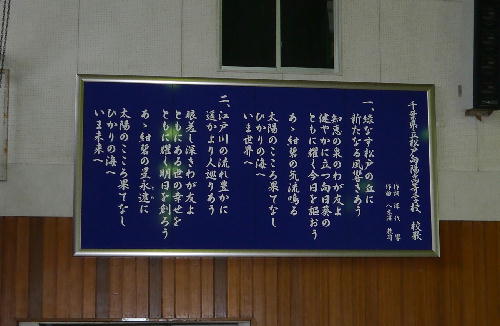 千葉県立松戸向陽高等学校 校歌
作詞
作曲
一、緑なす松戸の丘に
新たなる風響きあう
知恵の泉のわが友よ
健やかに立つ向日葵の
ともに耀く今日を謳おう
あゝ紺碧の気流鳴る
太陽のこころ果てなし
ひかりの海へ
いま世界へ
二、江戸川の流れ豊かに
遥かより人巡りあう
眼差し深きわが友よ
ともにある世の幸せを
ともに耀く明日を創ろう
あゝ紺碧の星永遠に
太陽のこころ果てなし
ひかりの海へ
いま未来へ